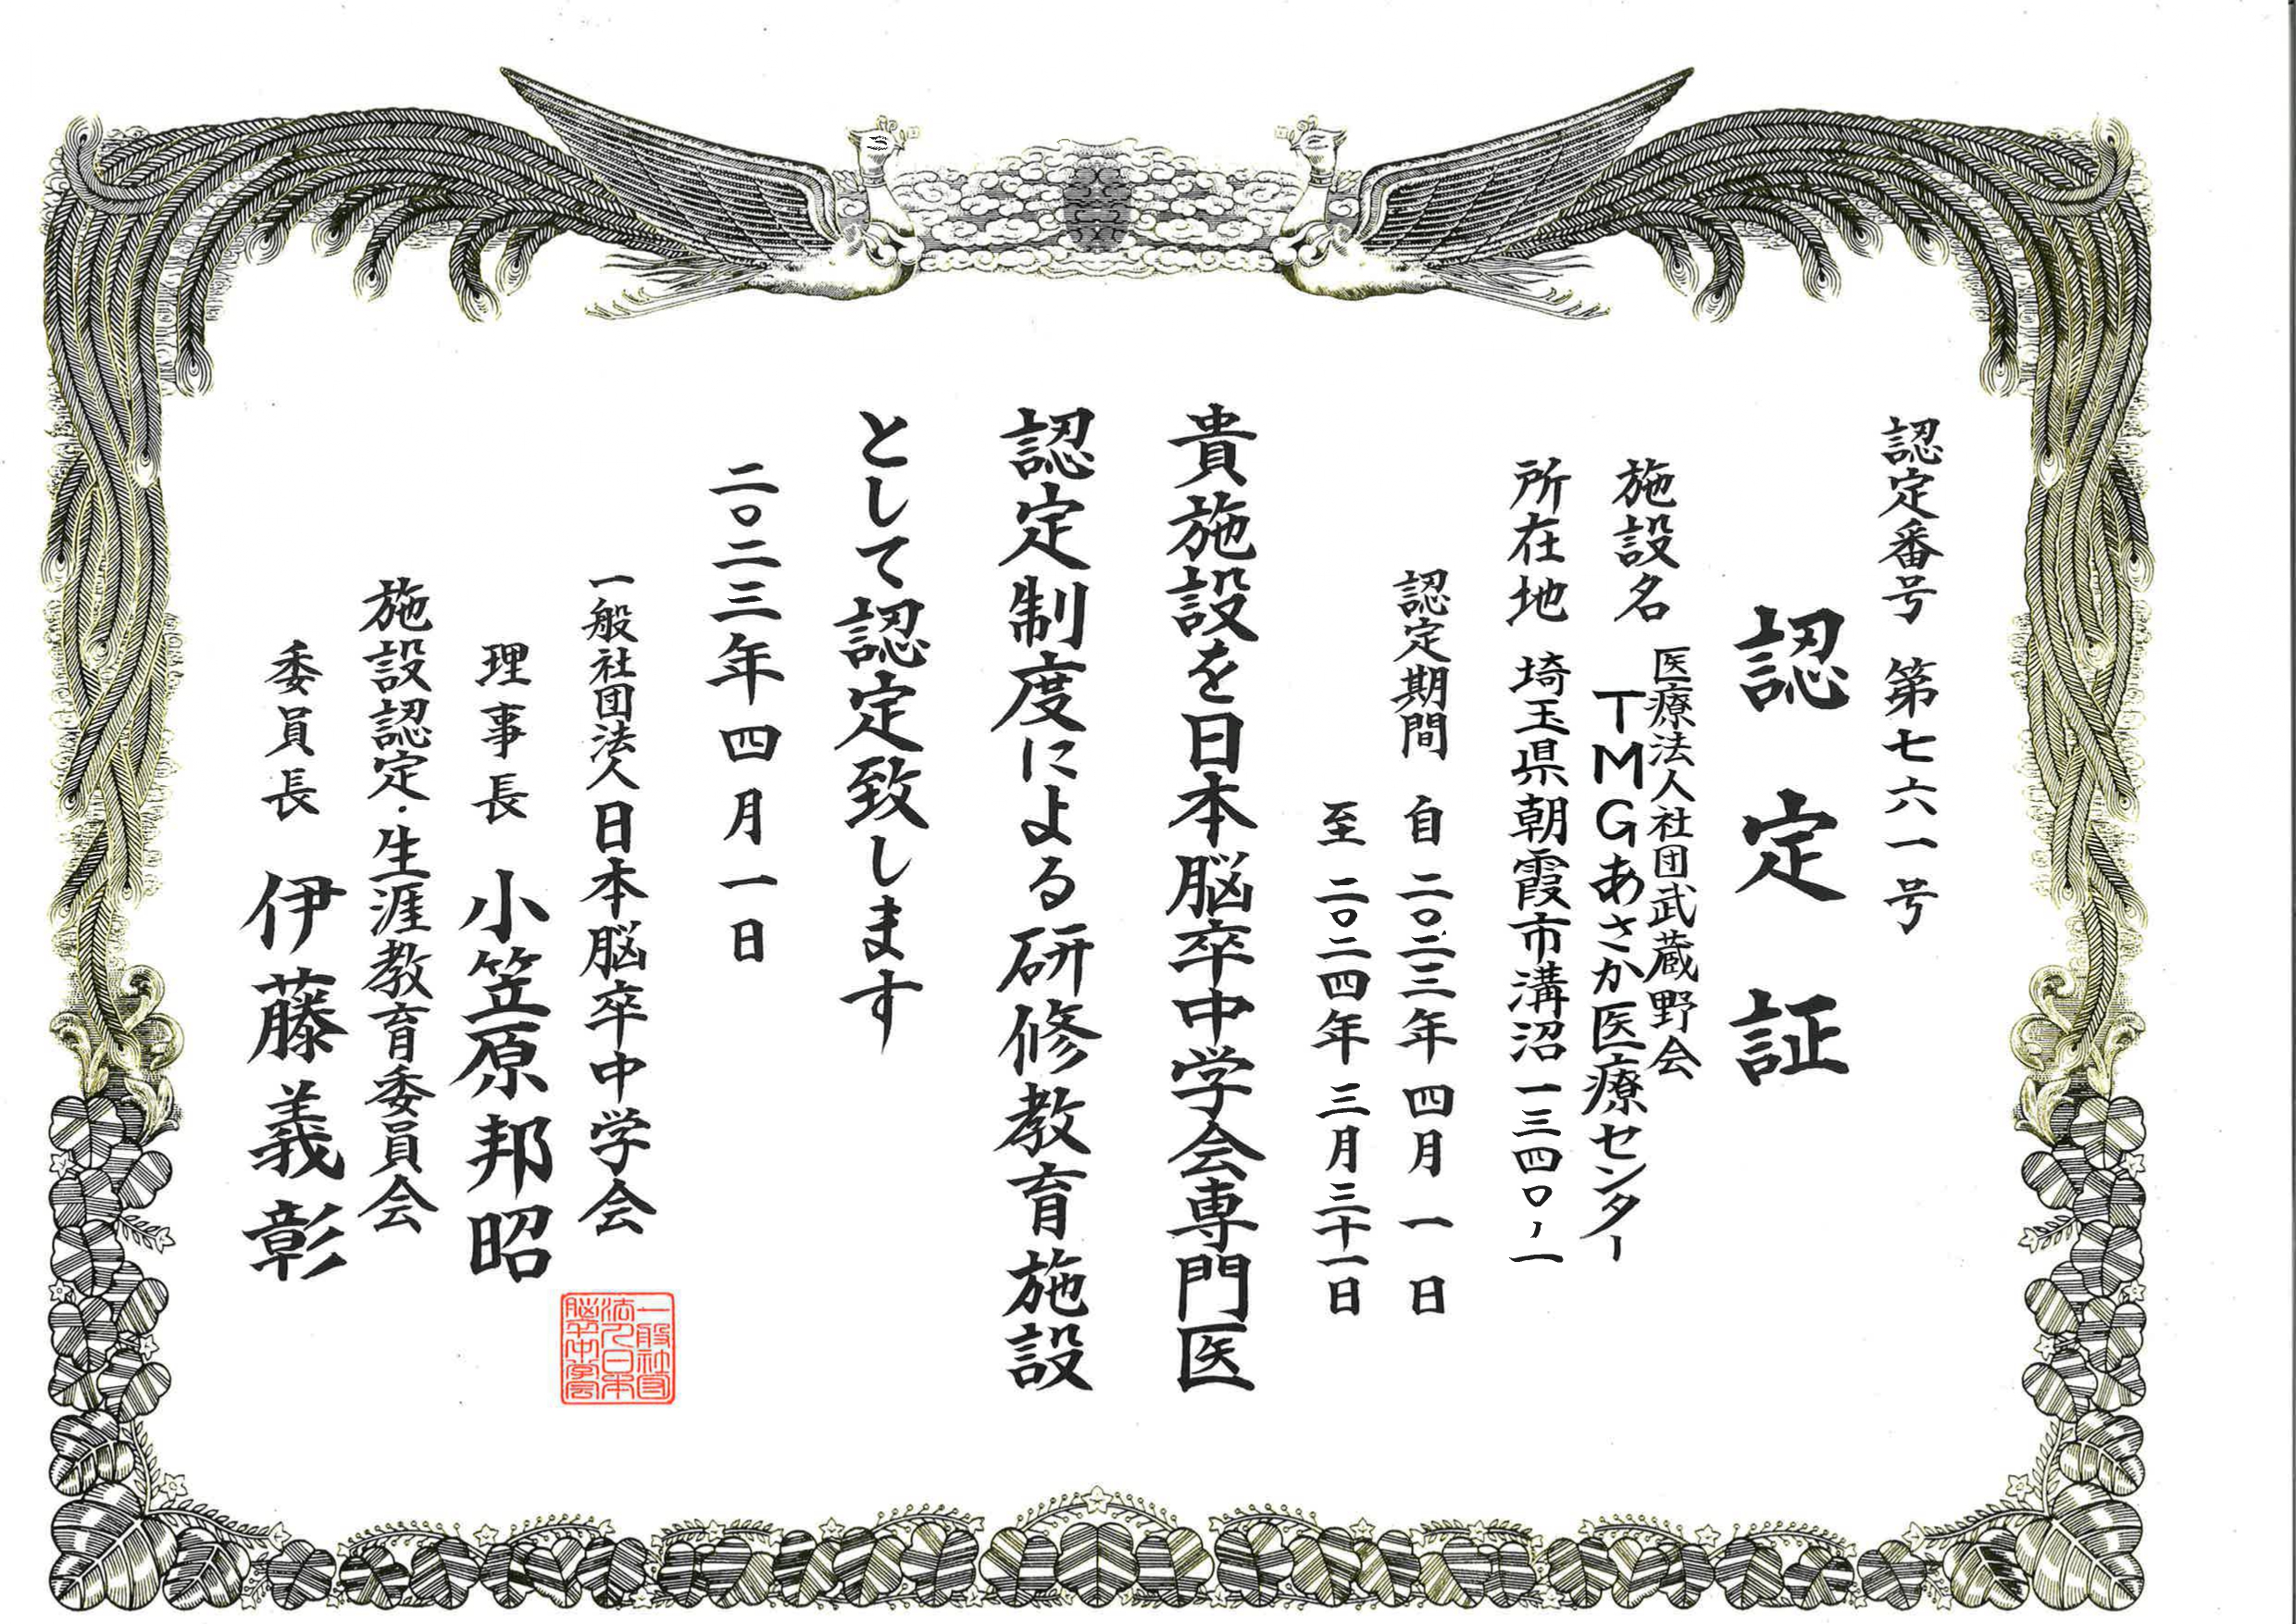 認定番号 第七六一号
認定証
施設名 医療法人社団武蔵野会
TMGあさか医療センター
所在地 埼玉県朝霞市溝沼一三四〇ノ一
認定期間 自 二〇二三年 四月 一日
至 二〇二四年 三月三十一日
貴施設を日本脳卒中学会専門医
認定制度による研修教育施設
として認定致します
二〇二三年四月一日
一般社団法人日本脳卒中学会
理事長 小笠原邦昭
施設認定・生涯教育委員会
委員長 伊藤義彰
一般社団
法人日本
脳卒中学会